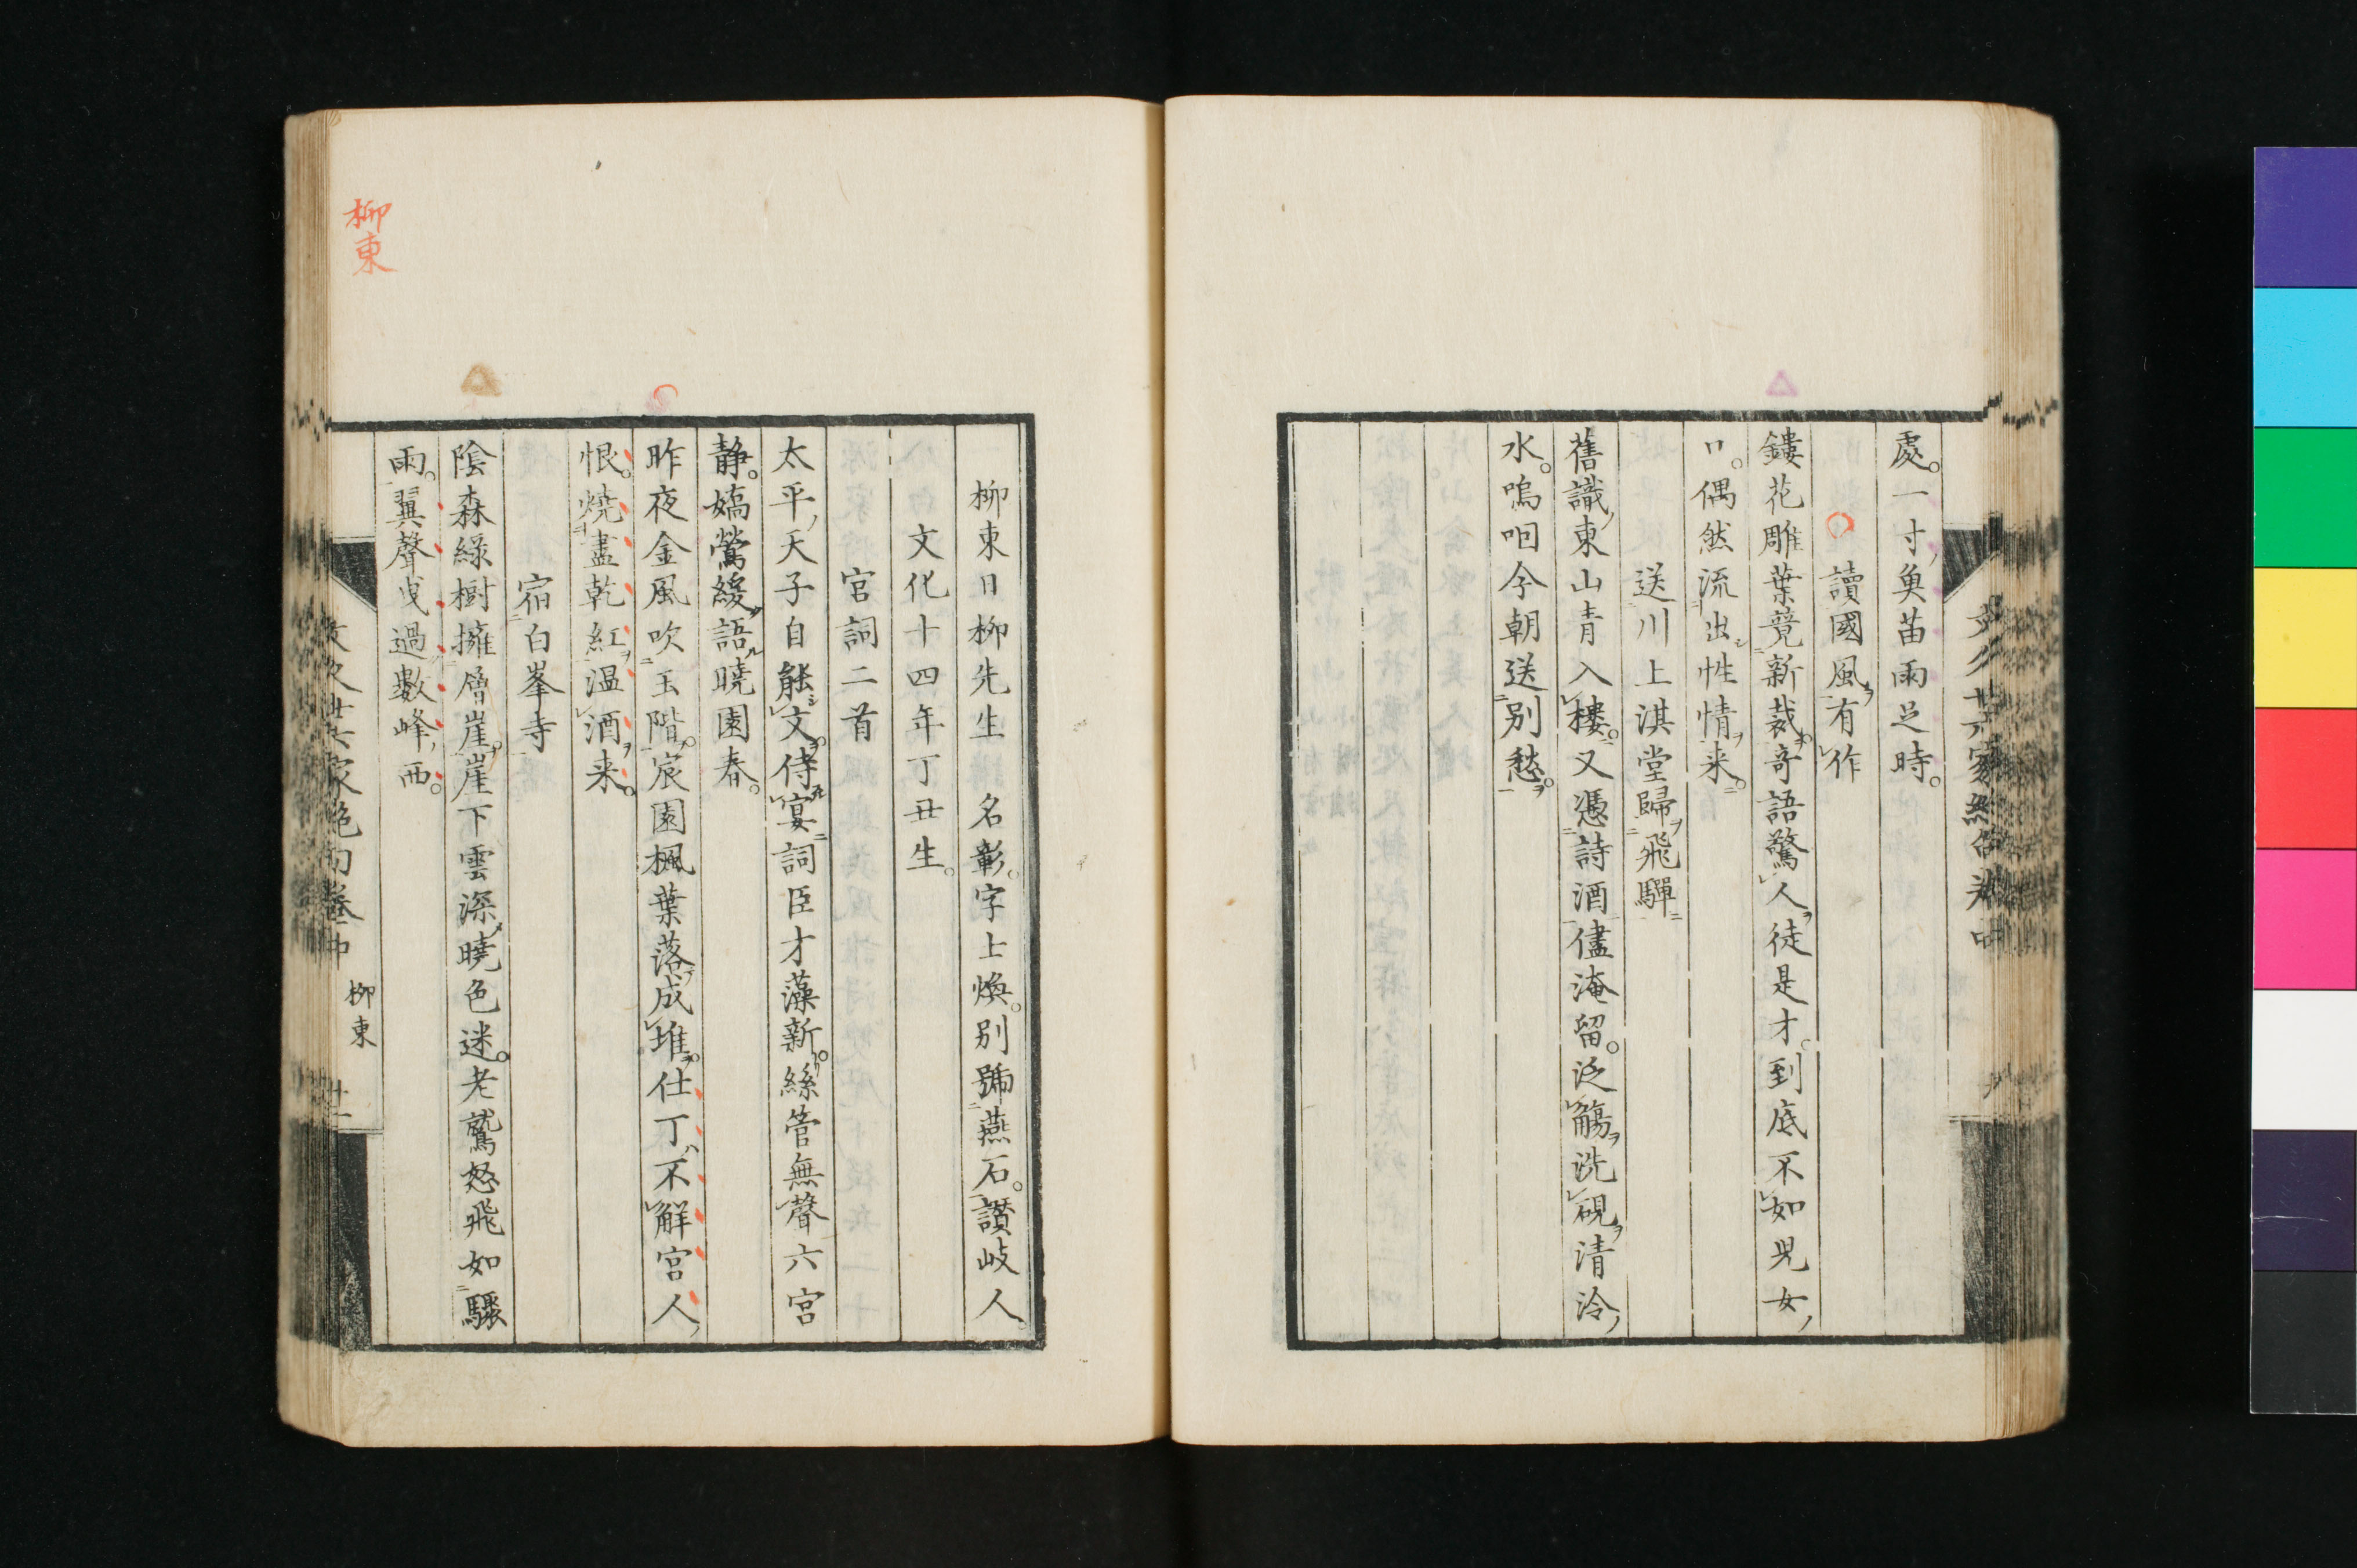 處。一寸魚苗雨足時。
讀國風有作
鏤花雕葉競新裁。奇語驚人徒是才。到底不如兒女
口。偶然流出性情来。
送川上淇堂歸飛騨
舊識東山青入樓。又憑詩酒儘淹留。泛觴洗硯清泠
水。嗚咽今朝送別愁。
柳東日柳先生 名彰。字士煥。別號燕石。讃岐人。
文化十四年丁丑生。
宮詞二首
太平天子自能文。侍宴詞臣才藻新。絲管無聲六宮
静。嬌鶯緩語曉園春。
昨夜金風吹玉階。宸園楓葉落成堆。仕丁不解宮人
恨。燒盡乾紅温酒来。
宿白峯寺
陰森緑樹擁層崖。崖下雲深曉色迷。老鷲怒飛如驟
雨。翼聲曳過數峰西。
柳東
柳東